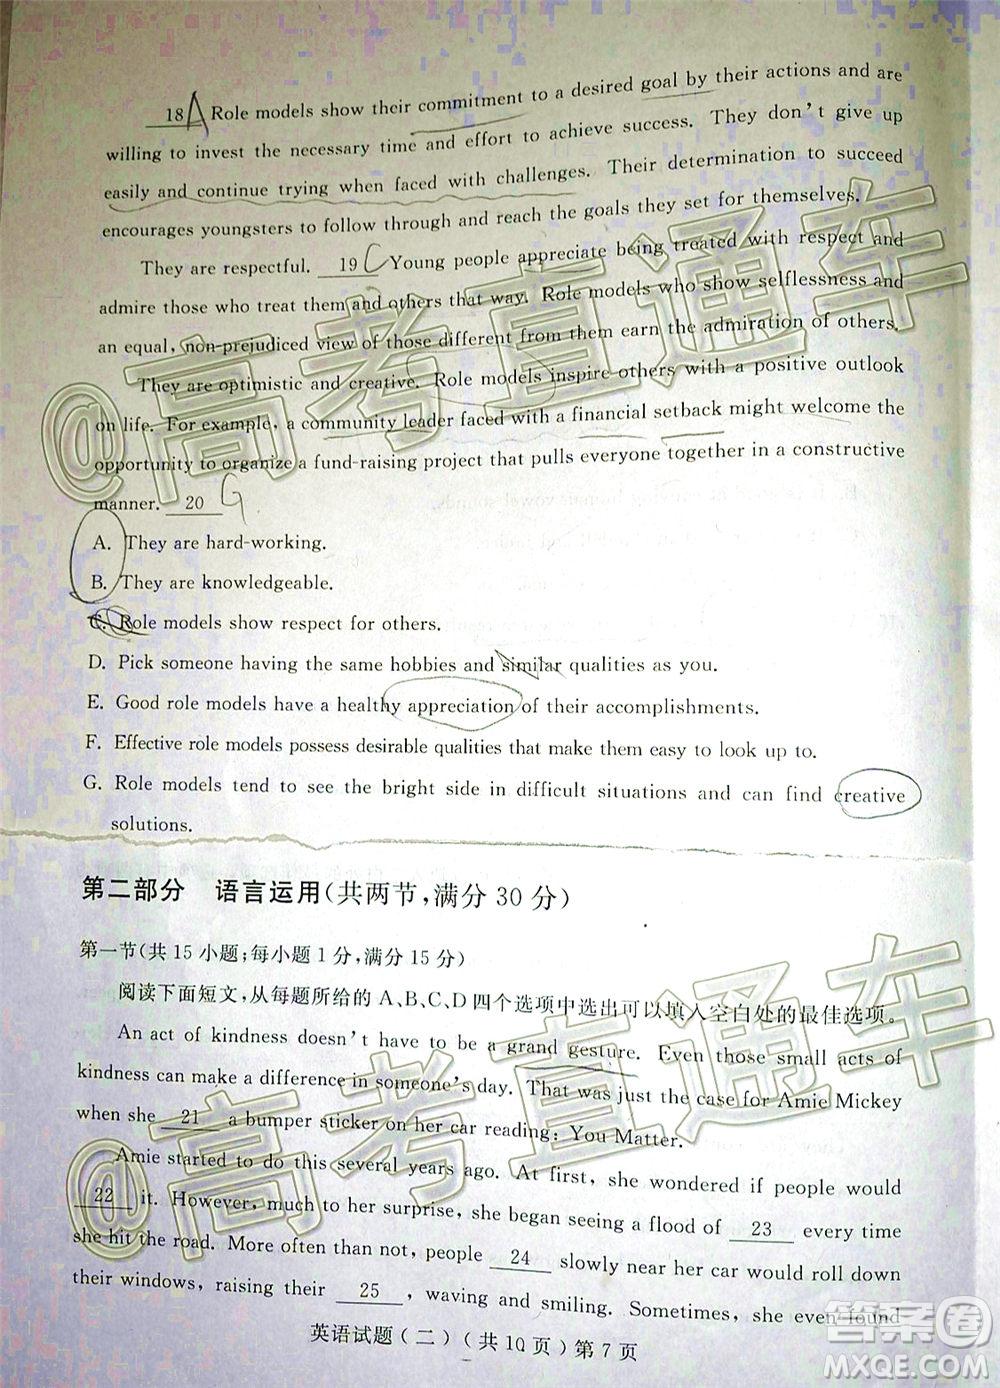 18 A Role models show their commitment to a desired goal by their actions and are
willing to invest the necessary time and effort to achieve success. They don't give up
easily and continue trying when faced with challenges. Their determination to succeed
encourages youngsters to follow through and reach the goals they set for themselves.
They are respectful. 19 C Young people appreciate being treated with respect and
admire those who treat them and others that way. Role models who show selflessness and
an equal, non-prejudiced view of those different from them earn the admiration of others.
They are optimistic and creative. Role models inspire others with a positive outlook
on life. For example, a community leader faced with a financial setback might welcome the
opportunity to organize a fund-raising project that pulls everyone together in a constructive
manner. 20 G
A. They are hard-working.
B. They are knowledgeable.
C. Role models show respect for others.
D. Pick someone having the same hobbies and similar qualities as you.
E. Good role models have a healthy appreciation of their accomplishments.
F. Effective role models possess desirable qualities that make them easy to look up to.
G. Role models tend to see the bright side in difficult situations and can find creative
solutions.
第二部分 语言运用(共两节,满分 30 分)
第一节(共 15 小题;每小题 1 分,满分 15 分)
阅读下面短文,从每题所给的 A、B、C、D 四个选项中选出可以填入空白处的最佳选项。
An act of kindness doesn't have to be a grand gesture. Even those small acts of
kindness can make a difference in someone's day. That was just the case for Amie Mickey
when she 21 a bumper sticker on her car reading: You Matter.
Amie started to do this several years ago. At first, she wondered if people would
22 it. However, much to her surprise, she began seeing a flood of 23 every time
she hit the road. More often than not, people 24 slowly near her car would roll down
their windows, raising their 25 , waving and smiling. Sometimes, she even found
英语试题(二)(共 10 页)第 7 页
@高考直通车
@高考直通车
答案卷
MXQE.COM